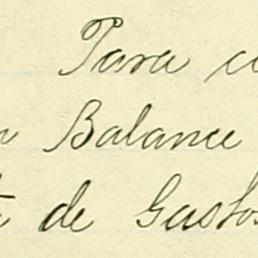 Para
Balance
de Gastos